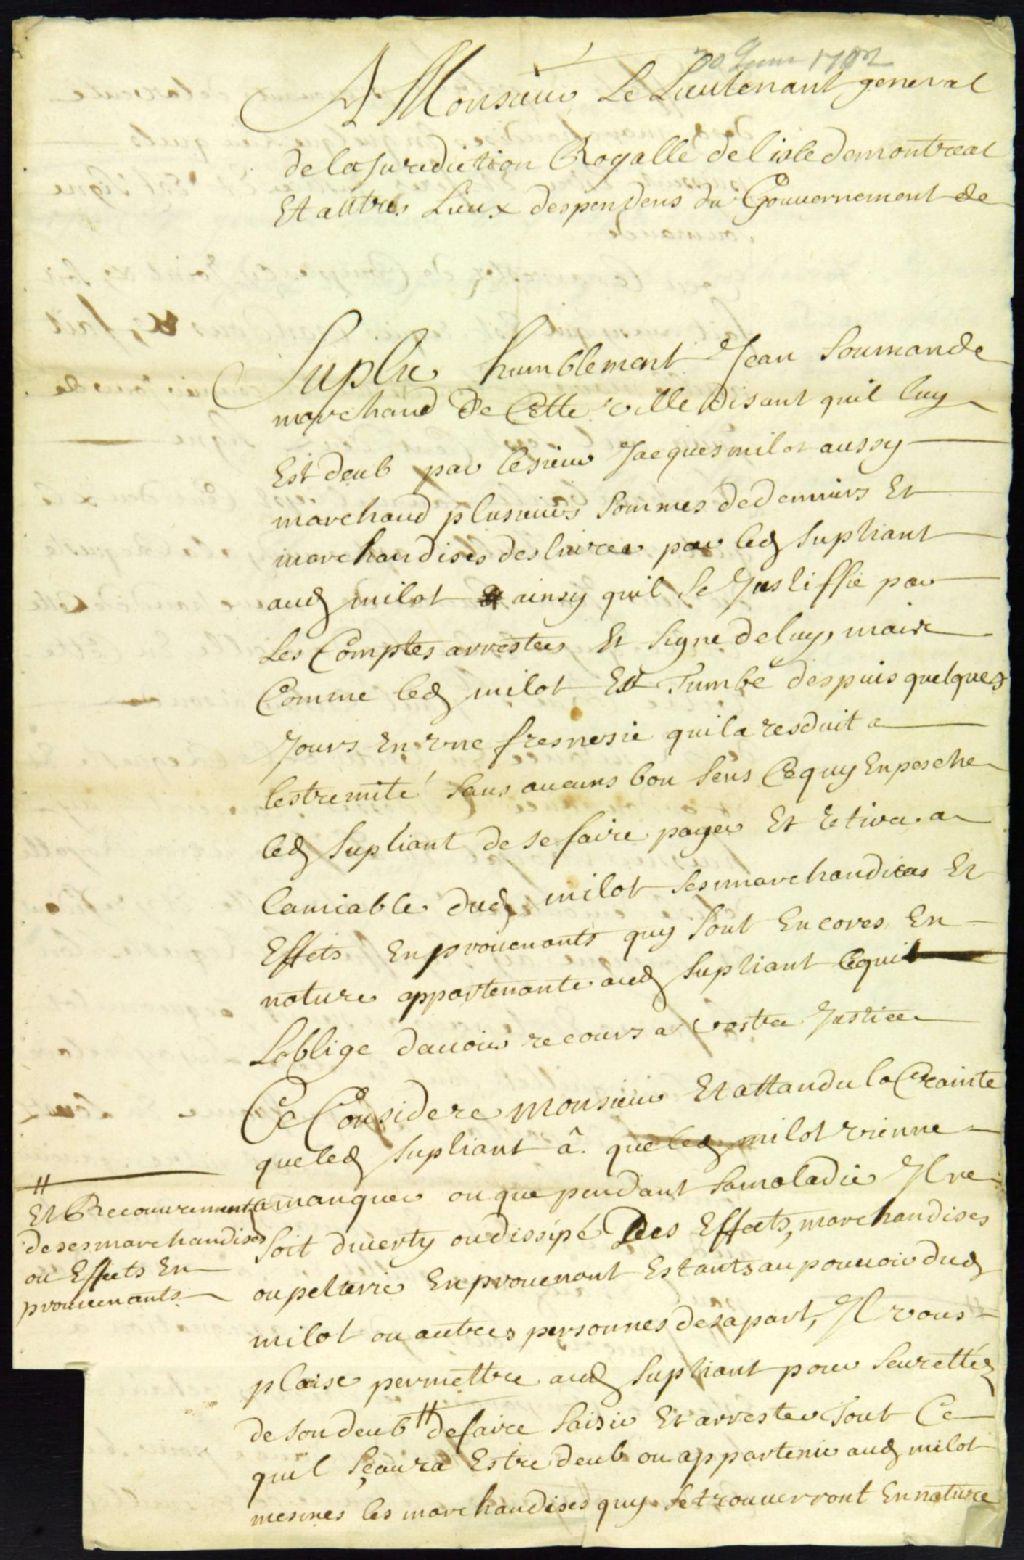 20 Juin 1702
A Monsieur Le Lieutenant general
de la Juridiction Royalle de l'isle de montreal
Et autres Lieux despendens du Gouvernement de
Suplie humblement Jean Soumande
marchand De Cette ville disant quil luy
Est deub par le sieur Jacques milot aussy
marchand plusieurs sommes de deniers Et
marchandises deslivrez par led supliant
aud milot ainsy quil se Justiffie par
Les Comptes arrestez Et signe de luy, mais
Comme led milot Est Tumbé despuis quelques
Jours En vne fresnesie qui la resduit a
lestremité sans aucuns bon sens Ce quy Enpesche
led supliant de se faire payer Et retirer a
lamiable dud milot ses marchandises Et
Effets En prouenants quy sont Encores En
nature appartenante aud supliant Ce qui
Loblige dauoir recours a vostre Justice
Ce Consideré Monsieur Et attandu la Crainte
que led supliant â que led milot vienne
a manquer ou que pendant sa maladie Il ne
soit diuerty ou dissipé Des Effects, marchandises
ou peltrie En prouenant Estants au pouuoir dud
milot ou autres personnes de sa part, Il vous
plaise permettre aud supliant pour seurettéz
de son deub # de faire saisir Et arrester tout Ce
quil sçaura Estre deub ou appartenir aud milot
mesmes les marchandises quy se trouuerront En nature
#
Et Recouurement
de ses marchandises
ou Effects En
prouuenants